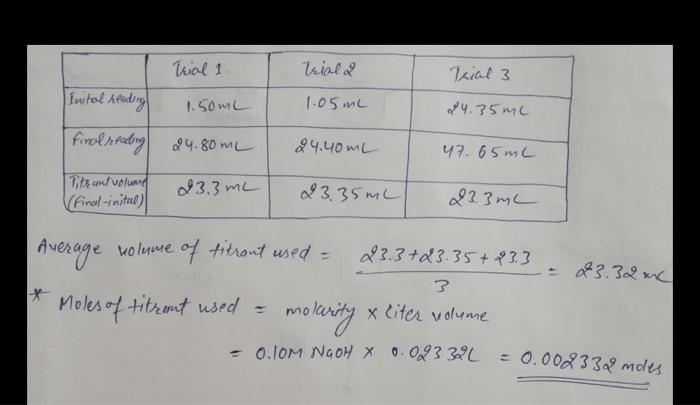 Trial 1. Trial 2 Trial 3
Initial reading 1.50mL 1.05mL 24.35mL
Final reading 24.80mL 24.40mL 47.65mL
Titrant volume (final-inital) 23.3mL 23.35mL 23.3mL
Average volume of titrant used = 23.3+23.35+23.3 / 3 = 23.32mL
* Moles of titrant used = molarity x liter volume
= 0.10M NaOH x 0.02332L = 0.002332 moles